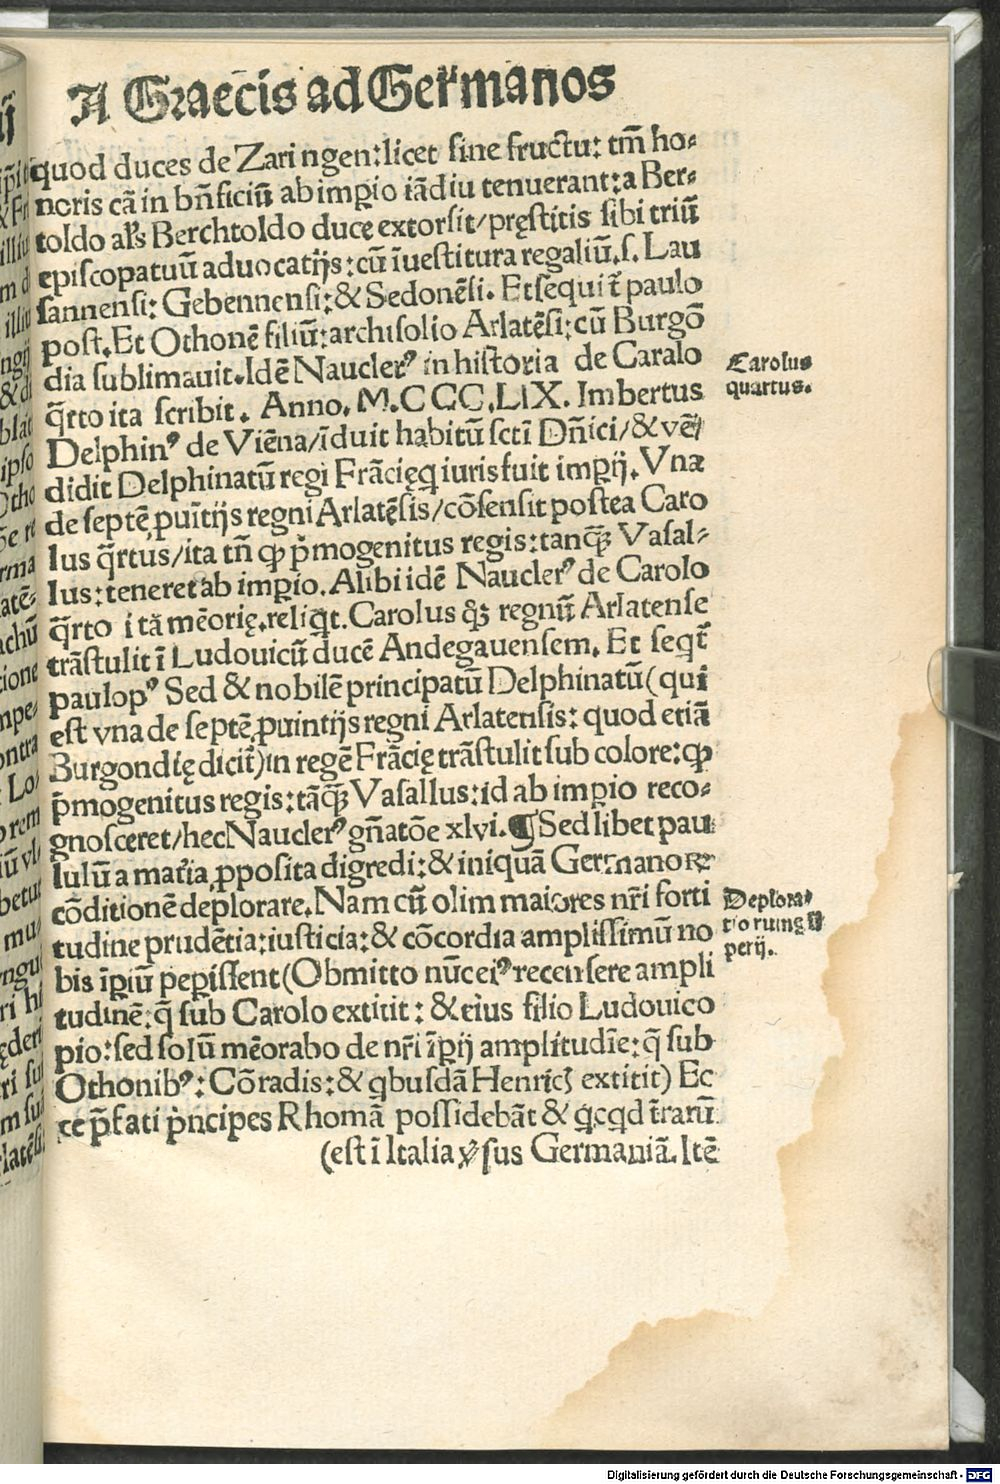 A Graecis ad Germanos
quod duces de Zaringen:licet sine fructu: tm̄ ho⸗
noris cā in bn̄ficiū ab imꝑio iādiu tenuerant:a Ber⸗
toldo al's Berchtoldo duce extorsit/pręstitis sibi triū
episcopatuū aduocatijs:cū īuestitura regaliū.s. Lau
sannensi: Gebennensi:& Sedonēsi. Et sequit᷑ paulo
post.Et Othonē filiū:archisolio Arlatēsi:cū Burgō
dia sublimauit.Idē Naucler⁹ in historia de Caralo
q̄rto ita scribit. Anno. M.CCCC.LIX. Imbertus
Delphin⁹ de Viēna/īduit habitū scti Dn̄ici/& vē
didit Delphinatū regi Frācię q iuris fuit imꝑij. Vna
de septē ꝓuītijs regni Arlatēsis/cōsensit postea Caro
lus q̄rtus/ita tn̄ ꝙ p̄mogenitus regis:tanq̄ꝫ Vasal⸗
lus:teneret ab imꝑio. Alibi idē Naucler⁹ de Carolo
q̄rto itā mēorię.reliq̄t. Carolus qꝫ regnū Arlatense
trāstulit ī Ludouicū ducē Andegauensem. Et seqt᷑
paulop⁹ Sed & nobilē principatū Delphinatū(qui
est vna de septē ꝓuintijs regni Arlatensis: quod etiā
Burgondię dicit᷑)in regē Frācię trāstulit sub colore:ꝙ
p̄mogenitus regis:tāq̄ꝫ Vasallus:id ab imꝑio reco⸗
gnosceret/hec Naucler⁹ gn̄atōe xlvi.¶Sed libet pau
lulū a mat᷑ia ꝓposita digredi:& iniquā Germanoꝝ
cōditionē deplorare.Nam cū olim maiores nr̄i forti
tudine prudētia:iusticia:& cōcordia amplissimū no
bis īꝑiū peꝑissent(Obmitto nūc ei⁹ recensere ampli
tudinē:q̄ sub Carolo extitit: & eius filio Ludouico
pio:sed solū mēorabo de nr̄i īꝑij amplitudīe:q̄ sub
Othonib⁹: Cōradis:& qbusdā Henricꝭ extitit) Ec
ce p̄fati p̄ncipes Rhomā possidebāt & q̇cqd t᷑rarū
(est ī Italia ꝟsus Germaniā. Itē
Carolus
quartus.
Deplora⸗
perij.
Digitalisierung gefördert durch die Deutsche Forschungsgemeinschaft - DFG